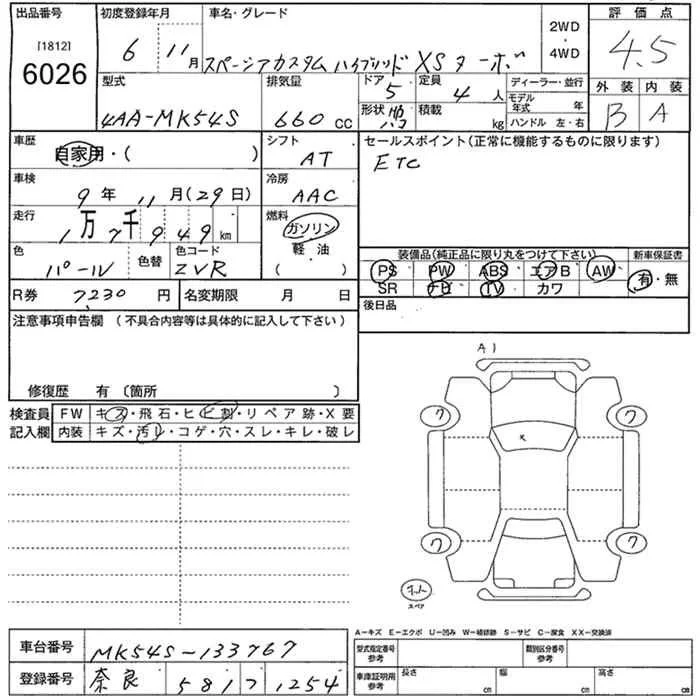 出品番号 初度登録年月 車名・グレード 評価点
[1812] 6026
6 11月 スペーシアカスタム ハイブリッド XS ターボ 2WD・4WD 4.5
型式 排気量 ドア 5 定員 4人 ディーラー・並行 外装 内装
4AA-MK54S 660cc 形状 積載 kg モデル年式 年 ハンドル 左・右 B A
車歴 シフト セールスポイント(正常に機能するものに限ります)
自家用・( ) AT ETC
車検 冷房
9年 11月(29日) AAC
走行 燃料
1万7千949km ガソリン
軽・油
色 色替 色コード ( ) 装備品(純正品に限り丸をつけて下さい) 新車保証書
パール ZVR PS PW ABS エアB AW 有・無
SR ナビ TV カワ
R券 7,230円 名変期限 月 日 後日品
注意事項申告欄 (不具合内容等は具体的に記入して下さい)
修復歴 有 〔箇所 〕
A1
検査員 FW キズ・飛石・ヒビ割・リペア跡・X要
記入欄 内装 キズ・汚レ・コゲ・穴・スレ・キレ・破レ
ワ ワ
x
ワ ワ
スペア
A-キズ E-エクボ U-凹み W-補修跡 S-サビ C-腐食 XX-交換済
車台番号 MK54S-133767 型式指定番号 参考 類別区分番号 参考
登録番号 奈良 581 1254 車庫証明用 参考 長さ cm 幅 cm 高さ cm